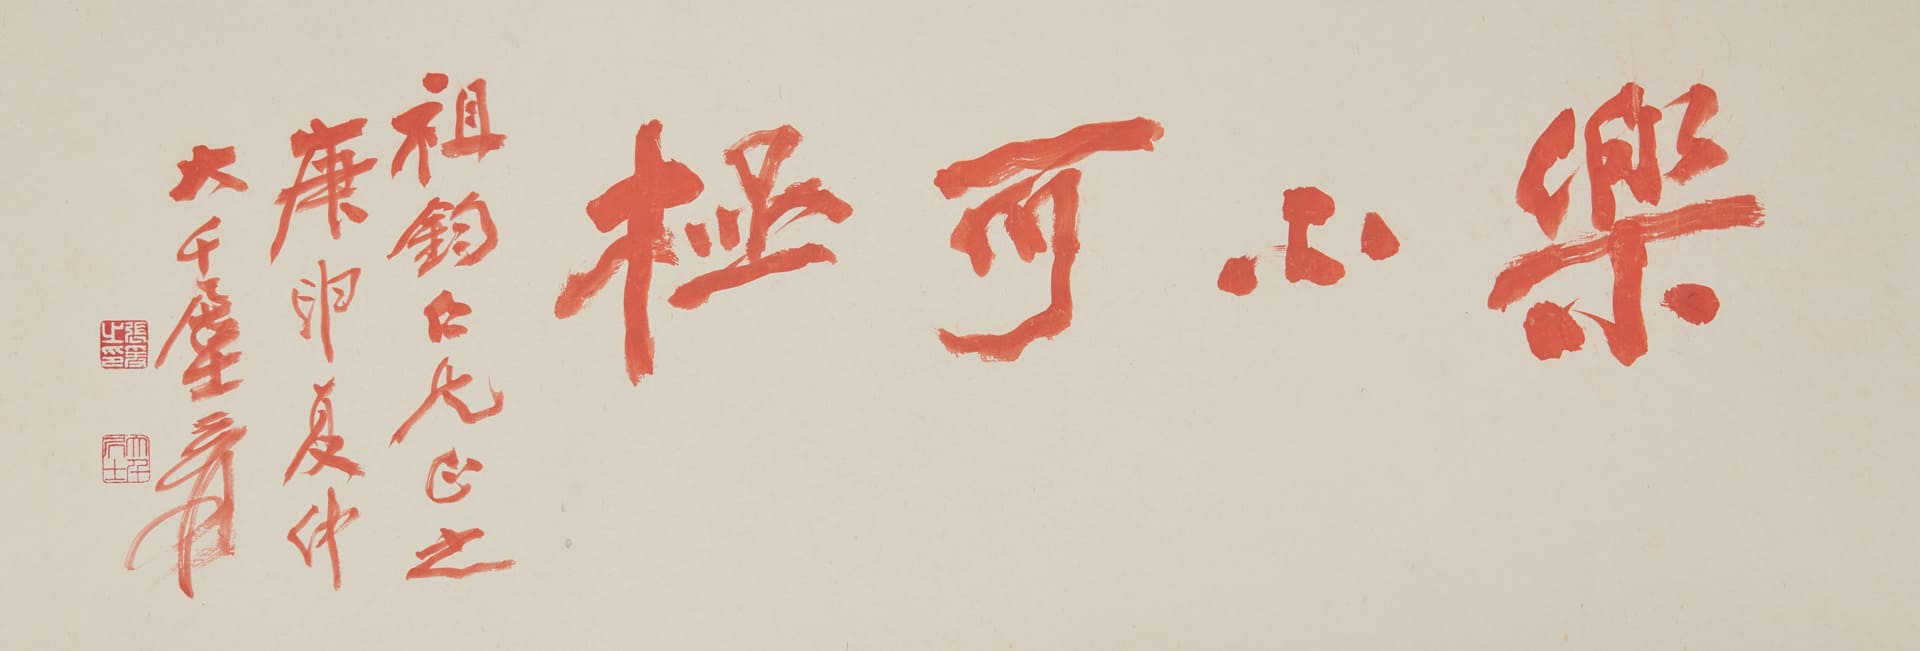 樂不可極
祖鈞仁兄正之
庚申夏仲
大千居士爰
張爰之印
大千居士